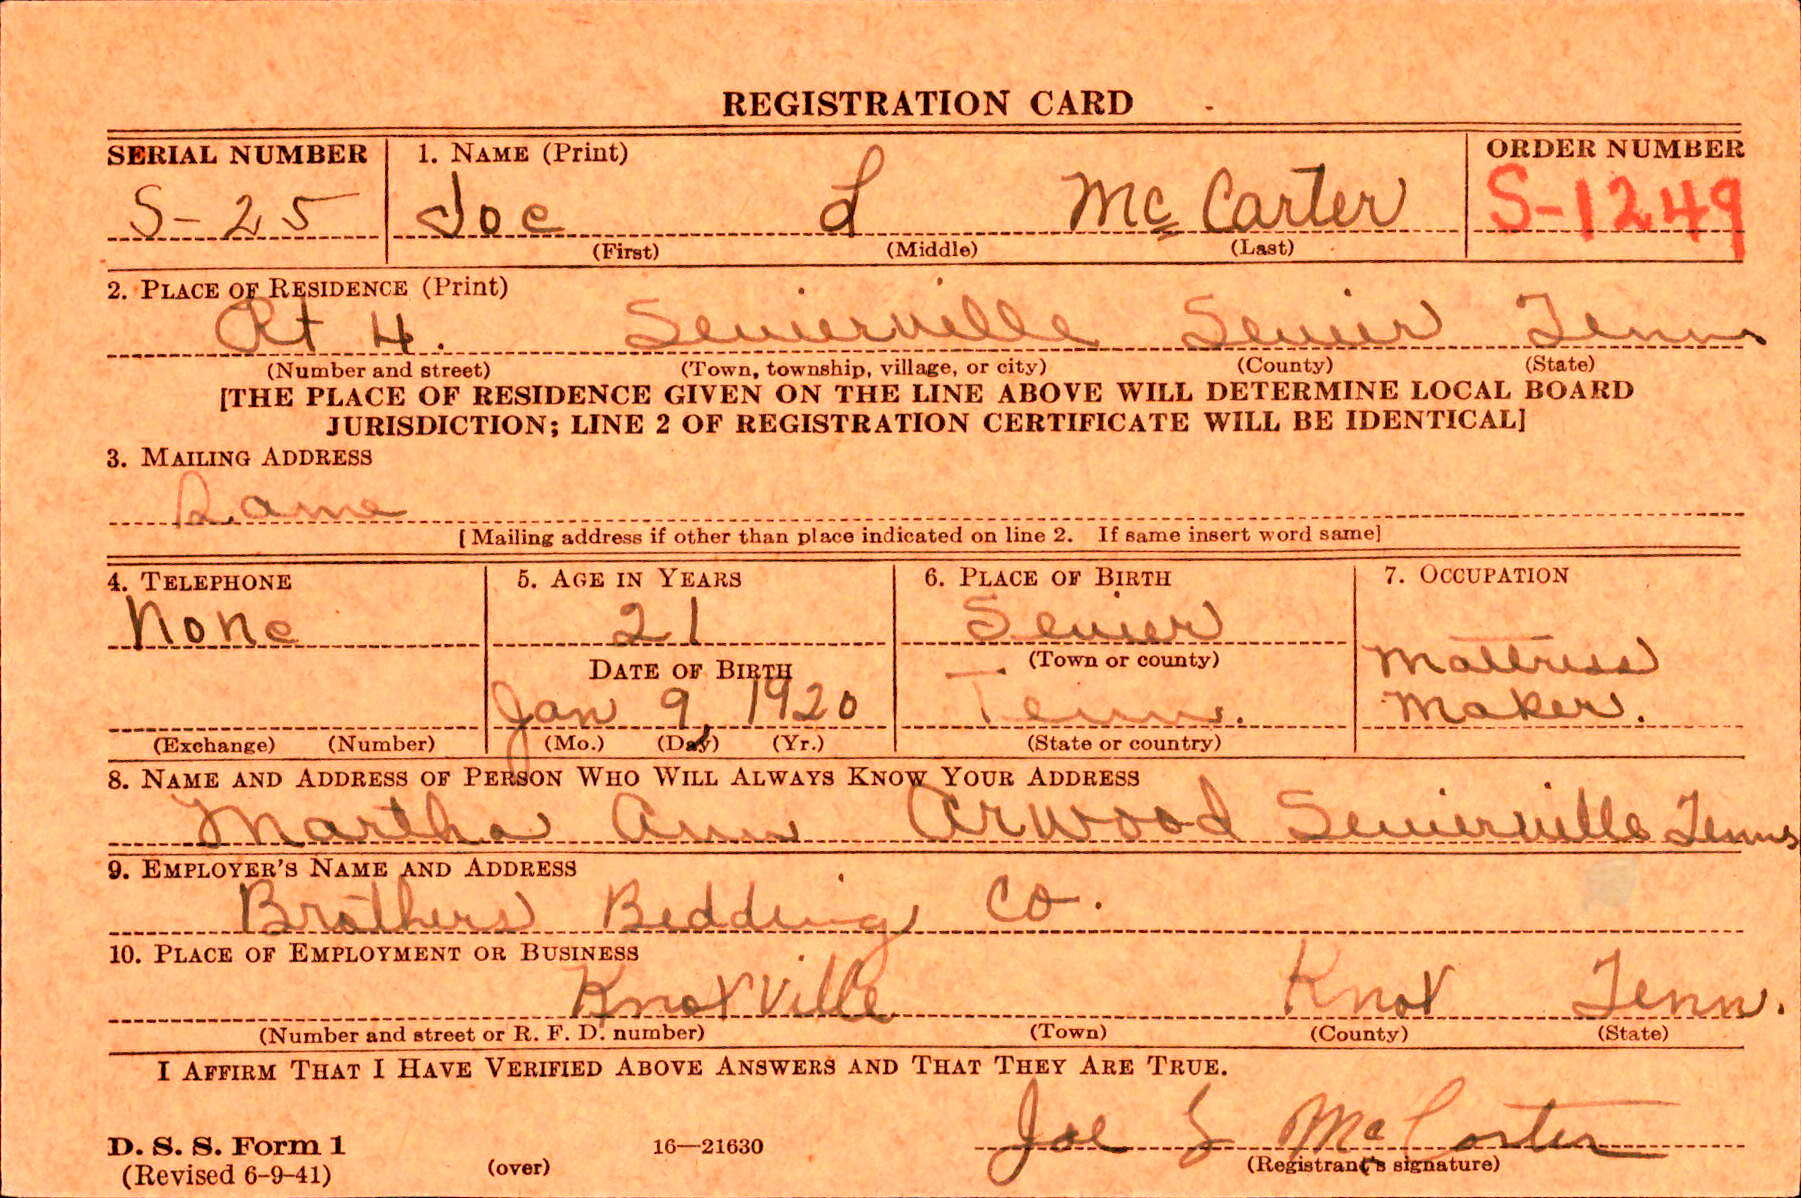 REGISTRATION CARD
SERIAL NUMBER 1. NAME (Print) ORDER NUMBER
S-25 Joe L McCarter S-1249
(First) (Middle) (Last)
2. PLACE OF RESIDENCE (Print)
Rt 4. Sevierville Sevier Tenn
(Number and street) (Town, township, village, or city) (County) (State)
[THE PLACE OF RESIDENCE GIVEN ON THE LINE ABOVE WILL DETERMINE LOCAL BOARD
JURISDICTION; LINE 2 OF REGISTRATION CERTIFICATE WILL BE IDENTICAL]
3. MAILING ADDRESS
Same
[Mailing address if other than place indicated on line 2. If same insert word same]
4. TELEPHONE 5. AGE IN YEARS 6. PLACE OF BIRTH 7. OCCUPATION
None 21 Sevier
DATE OF BIRTH (Town or county) Mattress
Jan 9, 1920 Tenn. Maker.
(Exchange) (Number) (Mo.) (Day) (Yr.) (State or country)
8. NAME AND ADDRESS OF PERSON WHO WILL ALWAYS KNOW YOUR ADDRESS
Martha Ann Arwood Sevierville Tenn
9. EMPLOYER'S NAME AND ADDRESS
Brothers Bedding Co.
10. PLACE OF EMPLOYMENT OR BUSINESS
Knoxville Knox Tenn.
(Number and street or R. F. D. number) (Town) (County) (State)
I AFFIRM THAT I HAVE VERIFIED ABOVE ANSWERS AND THAT THEY ARE TRUE.
Joe L McCarter
D. S. S. Form 1 16—21630
(Revised 6-9-41) (over) (Registrant's signature)